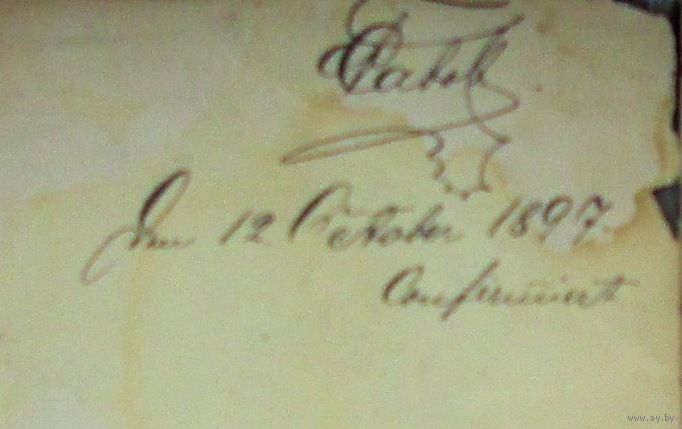 Den 12 October 1897.
Confirmirt
www.ay.by